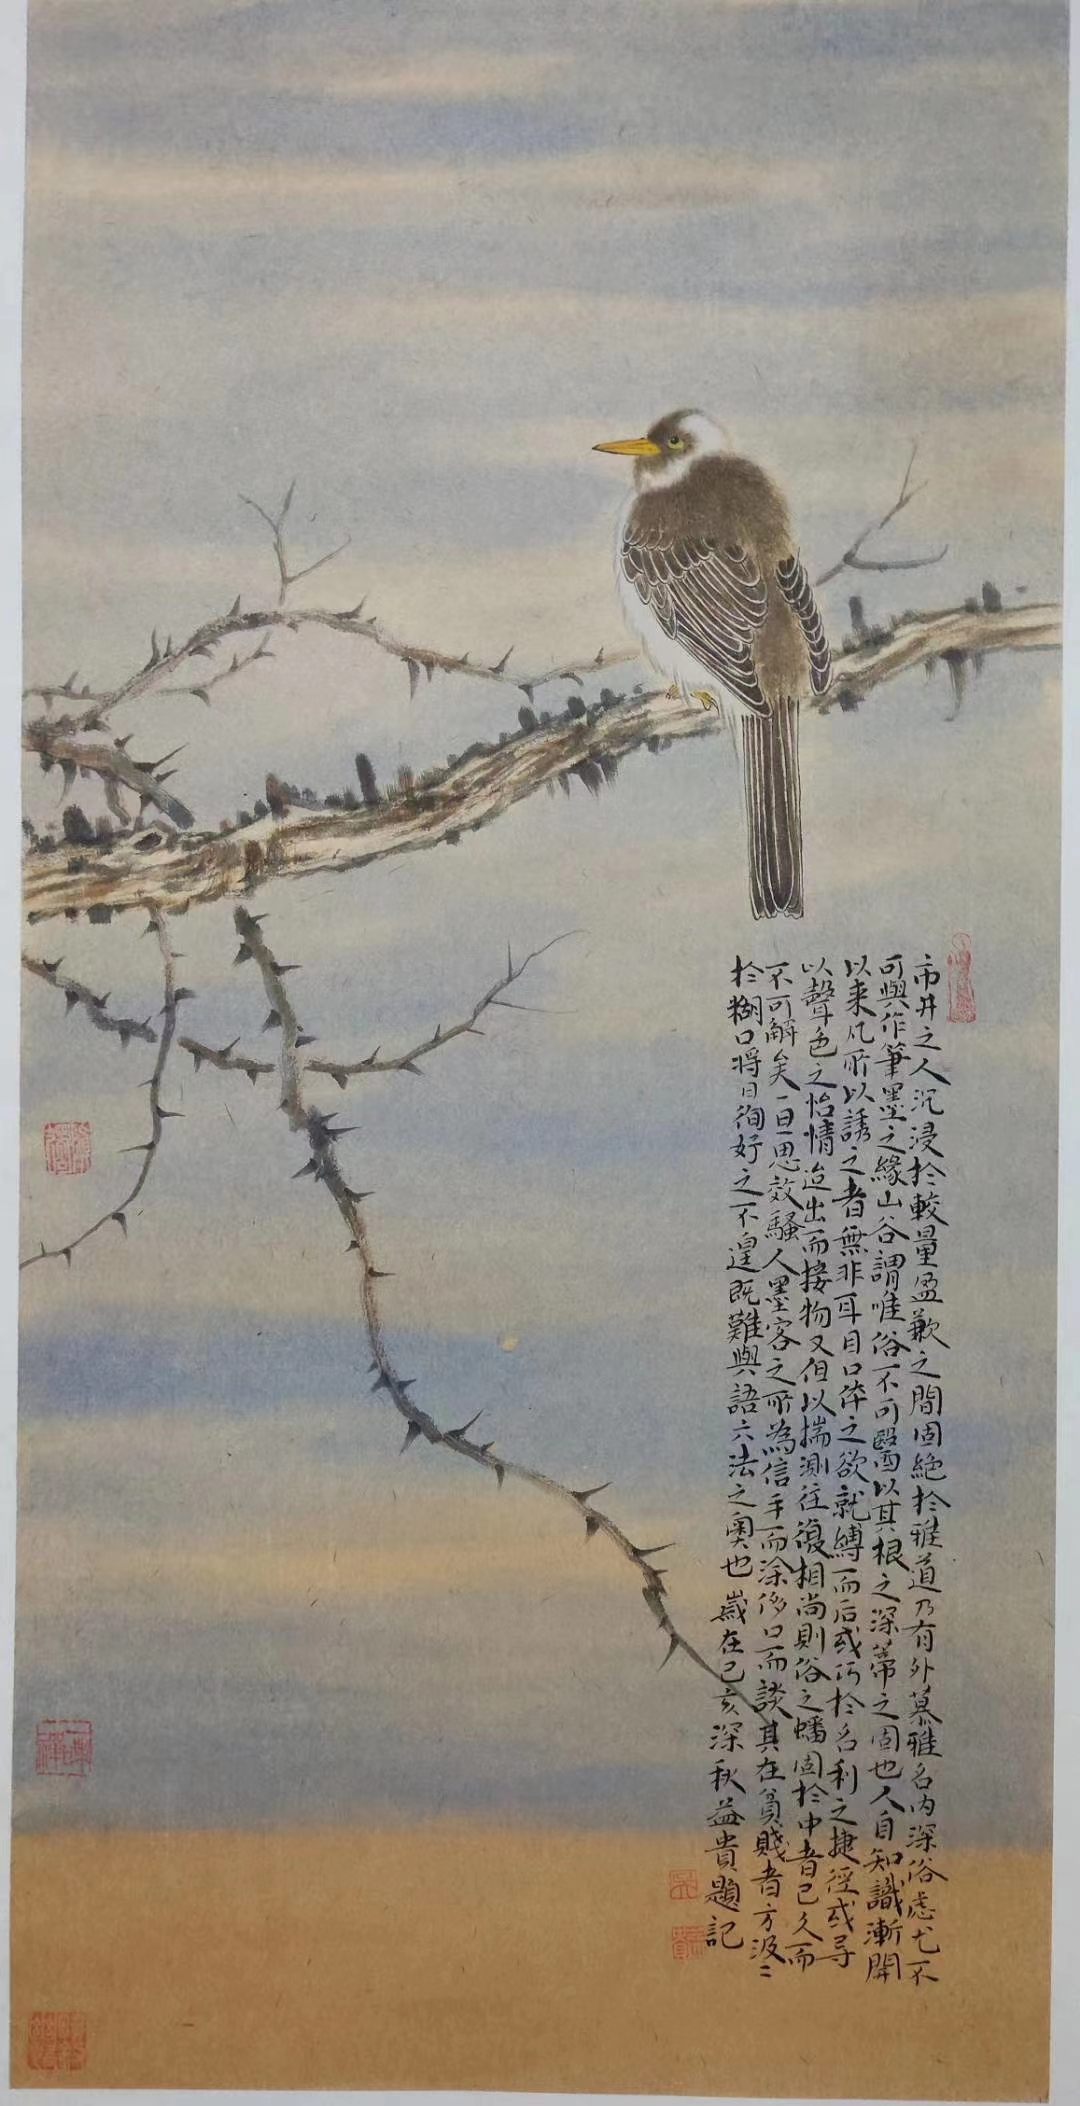 市井之人沉浸於較量盈歉之間固絶於雅道乃有外慕雅名内深俗慮尤不
可與作筆墨之緣山谷謂唯俗不可醫以其根之深蒂之固也人自知識漸開
以来凡所以誘之者無非耳目口体之欲就縛而后或巧於名利之捷徑或尋
以聲色之怡情迨出而接物又但以揣測往復相尚則俗之蟠固於中者已久而
不可解矣一旦思效騷人墨客之所為信手而涂侈口而談其在貧賤者方汲〻
於糊口将日徇好之不遑既難與語六法之奥也歲在己亥深秋益貴題記